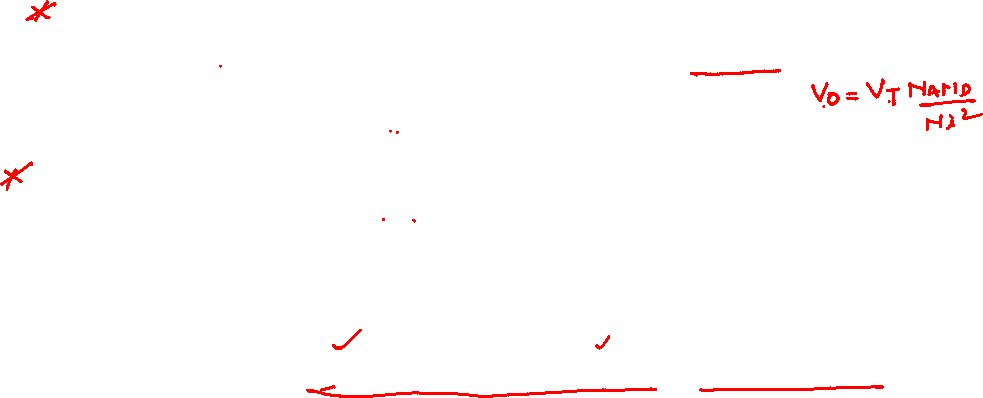 V₀ = V_T NAND / Ni²